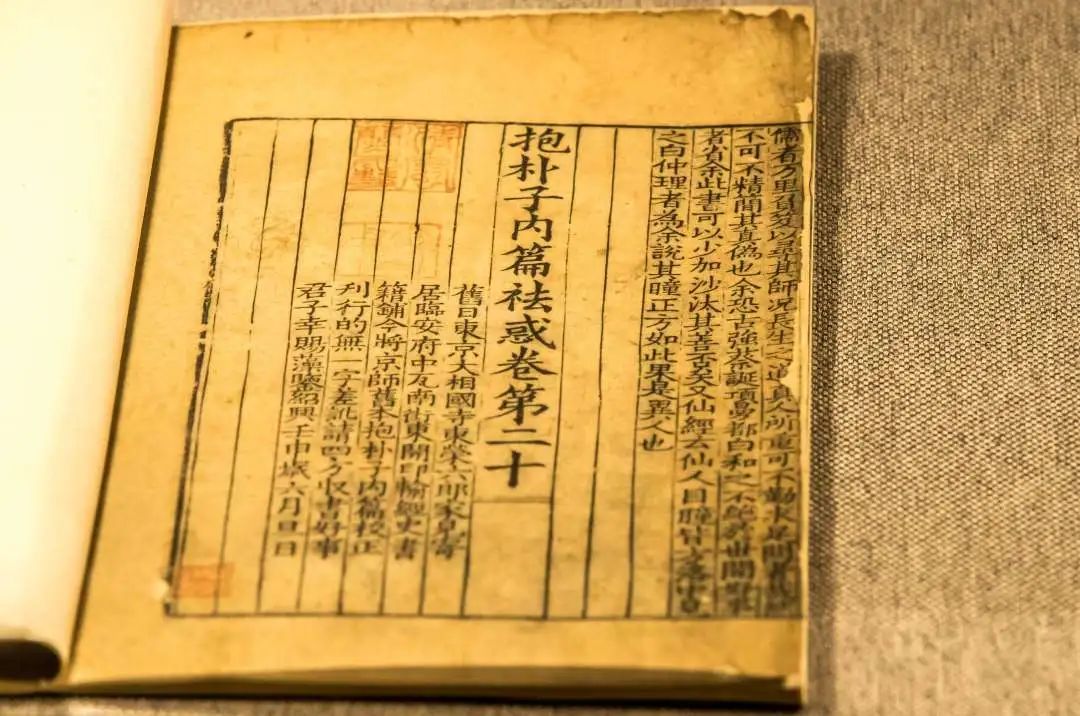 儒者万里負笈以尋其師況長生之道真人所重可不勤求足
不可不精簡其真偽也余恐古強蔡誕項曼都白和之不絕於世間好事
者省余此書可以少加沙汰其善否矣又仙經云仙人目瞳皆方洛中見
之白仲理者為余說其瞳正方如此果是異人也
抱朴子内篇祛惑卷第二十
舊日東京大相國寺東榮六郎家見寄
居臨安府中瓦南街東開印輸經史書
籍鋪今將京師舊本抱朴子内篇校正
刊行的無一字差訛請四方収書好事
君子幸賜藻鑒紹興壬申歲六月旦日